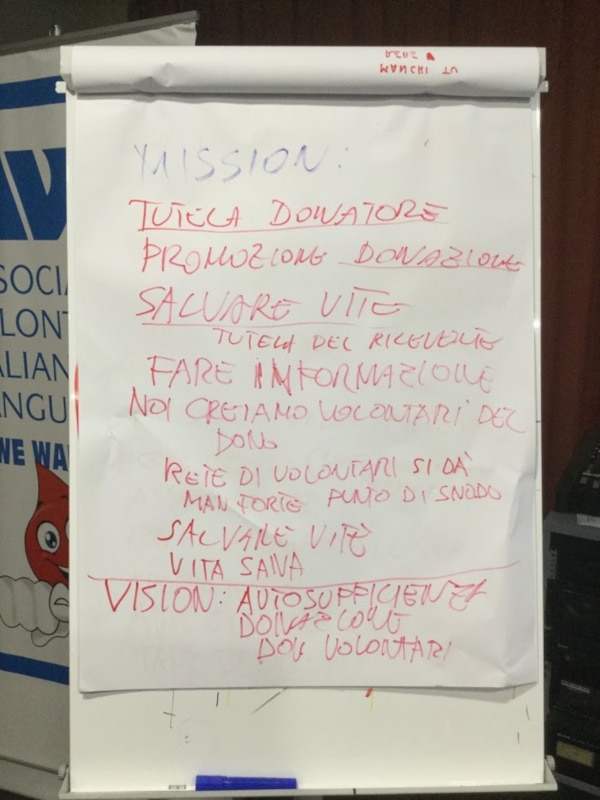 MISSION:
TUTELA DONATORE
PROMOZIONE DONAZIONE
SALVARE VITE
TUTELA DEL RICEVENTE
FARE INFORMAZIONE
NOI CREIAMO VOLONTARI DEL
DONO
RETE DI VOLONTARI SI DÀ
MAN FORTE PUNTO DI SNODO
SALVARE VITE
VITA SANA
VISION: AUTOSUFFICIENZA
DONAZIONE
VOLONTARI
AV
SOCIA
OLONT
ALIAN
ANGU
WE WA
UT MANCHI